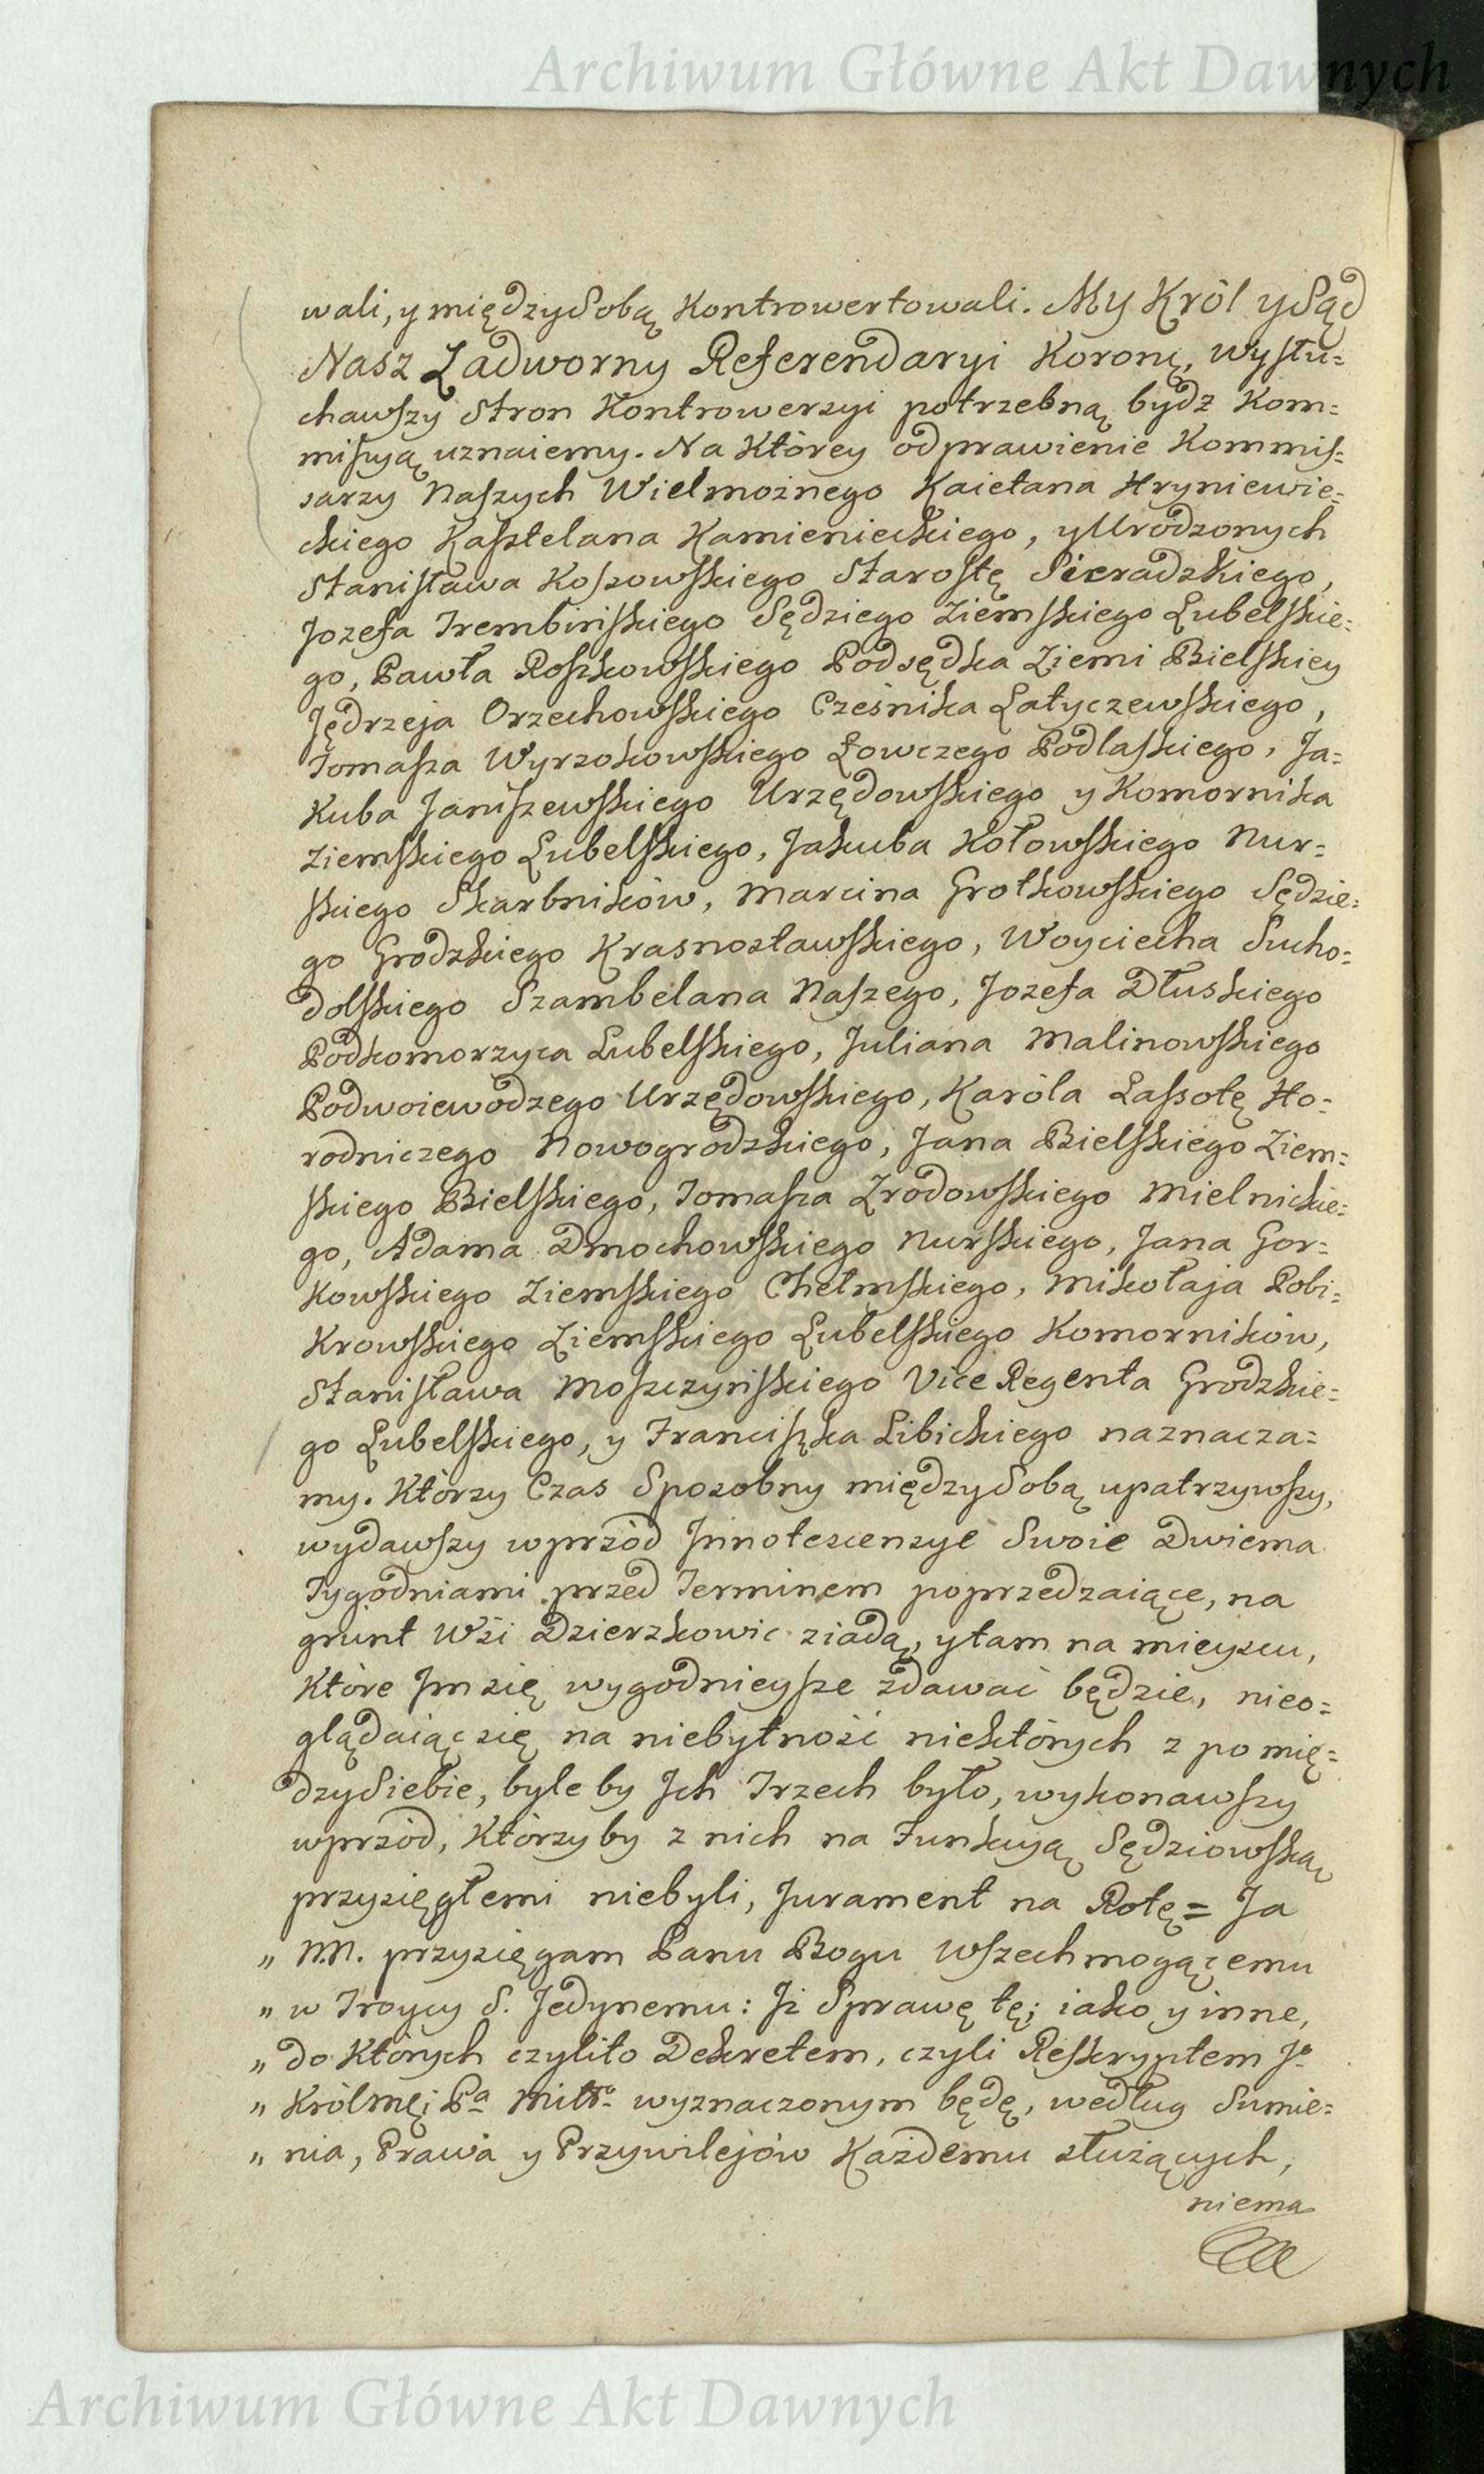 Archiwum Główne Akt Dawnych
wali, y między Sobą Kontrowertowali. My Król y Sąd
Nasz Zadworny Referendaryi Koronę, wysłu=
chawszy Stron Kontrowerzyi potrzebną bydz Kom=
missyą uznaiemy. Na Którey odprawienie Kommis=
sarzy Naszych Wielmożnego Kaietana Hryniewie=
ckiego Kasztelana Kamienieckiego, y Urodzonych
Stanisława Kossowskiego Starostę Sieradzkiego,
Jozefa Trembińskiego Sędziego Ziemskiego Lubelskie=
go, Pawła Roszkowskiego Podsędka Ziemi Bielskiey
Jędrzeja Orzechowskiego Cześnika Latyczewskiego,
Tomasza Wyrzokowskiego Łowczego Podlaskiego, Ja=
Kuba Janiszewskiego Urzędowskiego y Komornika
Ziemskiego Lubelskiego, Jakuba Kołowskiego Nur=
skiego Skarbników, Marcina Grotkowskiego Sędzie=
go Grodzkiego Krasnostawskiego, Woyciecha Sucho=
dolskiego Szambelana Naszego, Jozefa Dłuskiego
Podkomorzyca Lubelskiego, Juliana Malinowskiego
Podwoiewodzego Urzędowskiego, Karóla Lassotę Ho=
rodniczego Nowogrodzkiego, Jana Bielskiego Ziem=
skiego Bielskiego, Tomasza Zrodowskiego Mielnickie=
go, Adama Dmochowskiego Nurskiego, Jana Gor=
Kowskiego Ziemskiego Chełmskiego, Mikołaja Pobi=
Krowskiego Ziemskiego Lubelskiego Komorników,
Stanisława Moszczyńskiego Vice Regenta Grodzkie=
go Lubelskiego, y Franciszka Libickiego naznacza=
my. Którzy Czas Sposobny między Sobą upatrzywszy,
wydawszy wprzód Jnnotescenzye Swoie Dwiema
Tygodniami przed Terminem poprzedzaiące, na
grunt Wsi Dzierzkowic ziadą, y tam na mieyscu,
Które Jm się wygodnieysze zdawać będzie, nieo=
glądaiąc się na niebytność niektórych z pomię=
dzy Siebie, byle by Jch Trzech było, wykonawszy
wprzód, Którzy by z nich na Funkcyą Sędziowską
przysięgłemi niebyli, Jurament na Rotę = Ja
„ NN. przysięgam Panu Bogu Wszechmogącemu
„ w Troycy S. Jedynemu: Jż Sprawę tę; iako y inne,
„ do Których czyli to Dekretem, czyli Reskryptem Jº
„ Królmći Pª Miłº wyznaczonym będę, według Sumie=
„ nia, Prawa y Przywilejów Każdemu służących,
niema
Archiwum Główne Akt Dawnych